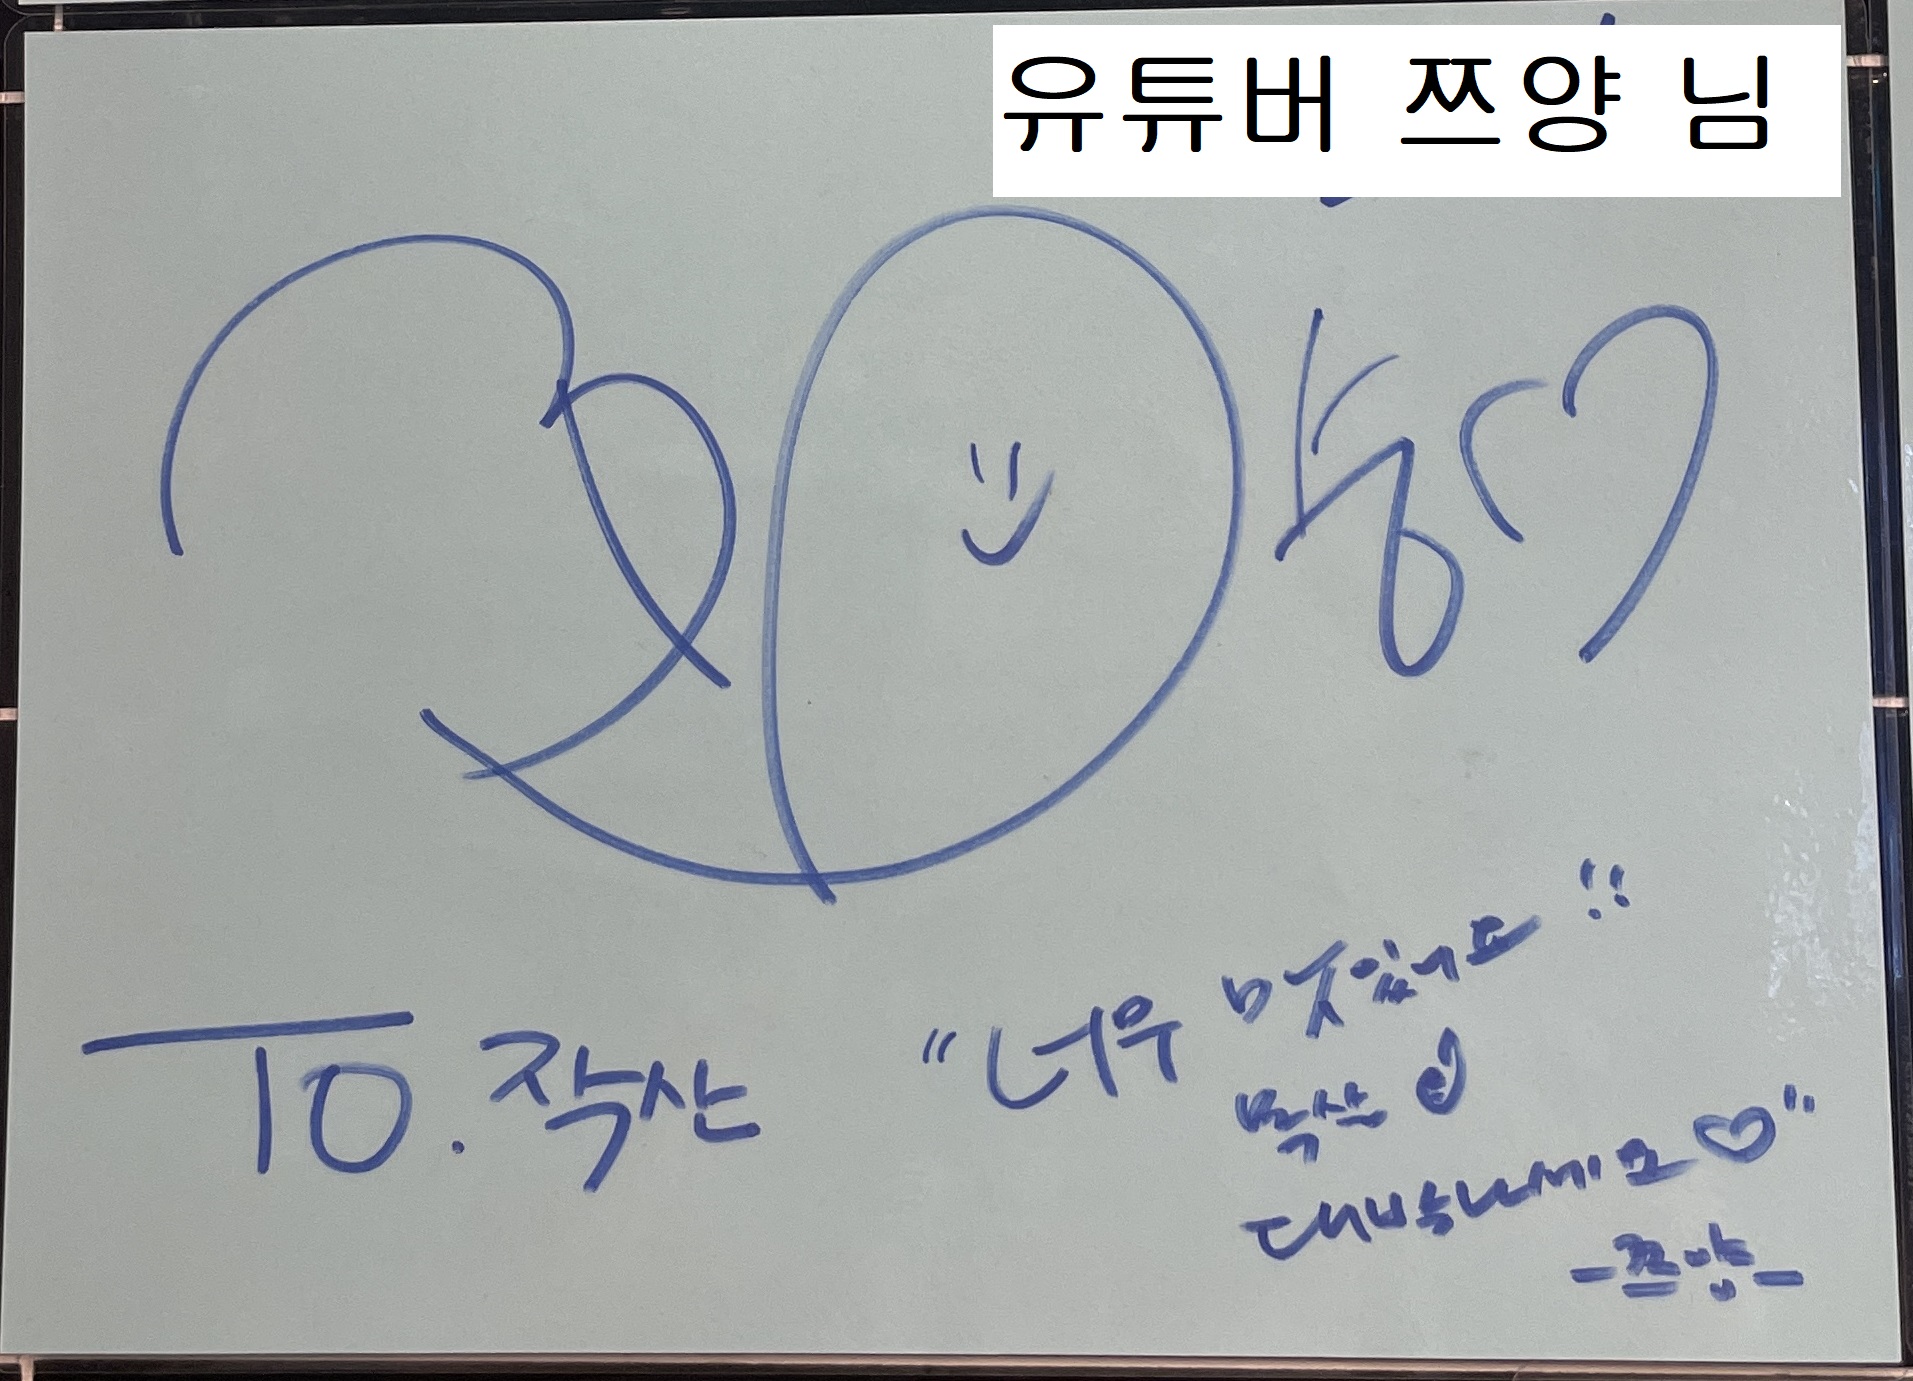 유튜버 쯔양 님
TO. 작산
"너무 맛있어요!!
대박나세요♡"
-쯔양-